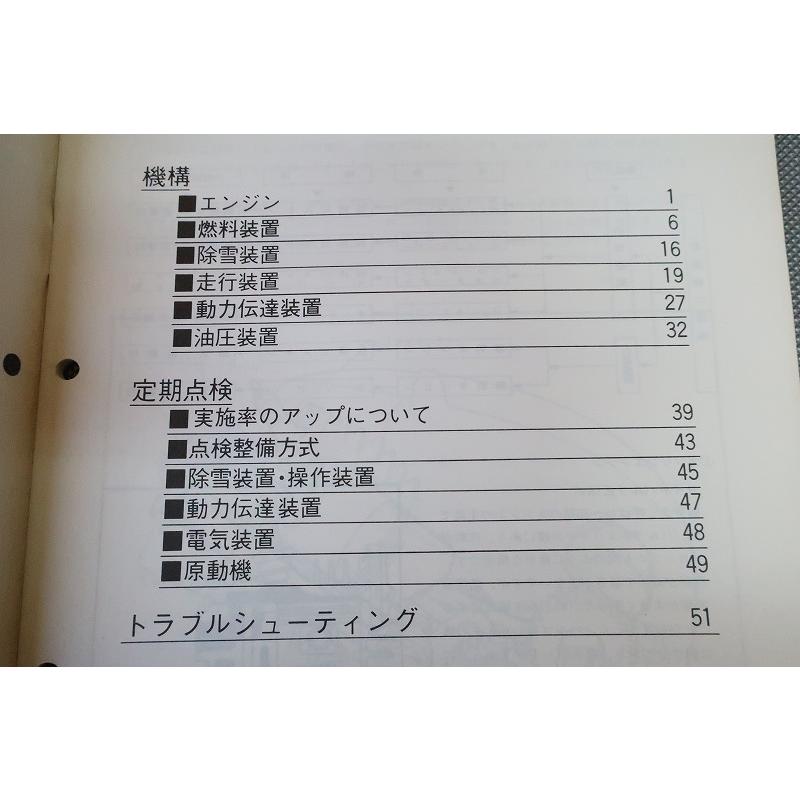 機構
■エンジン 1
■燃料装置 6
■除雪装置 16
■走行装置 19
■動力伝達装置 27
■油圧装置 32
定期点検
■実施率のアップについて 39
■点検整備方式 43
■除雪装置・操作装置 45
■動力伝達装置 47
■電気装置 48
■原動機 49
トラブルシューティング 51